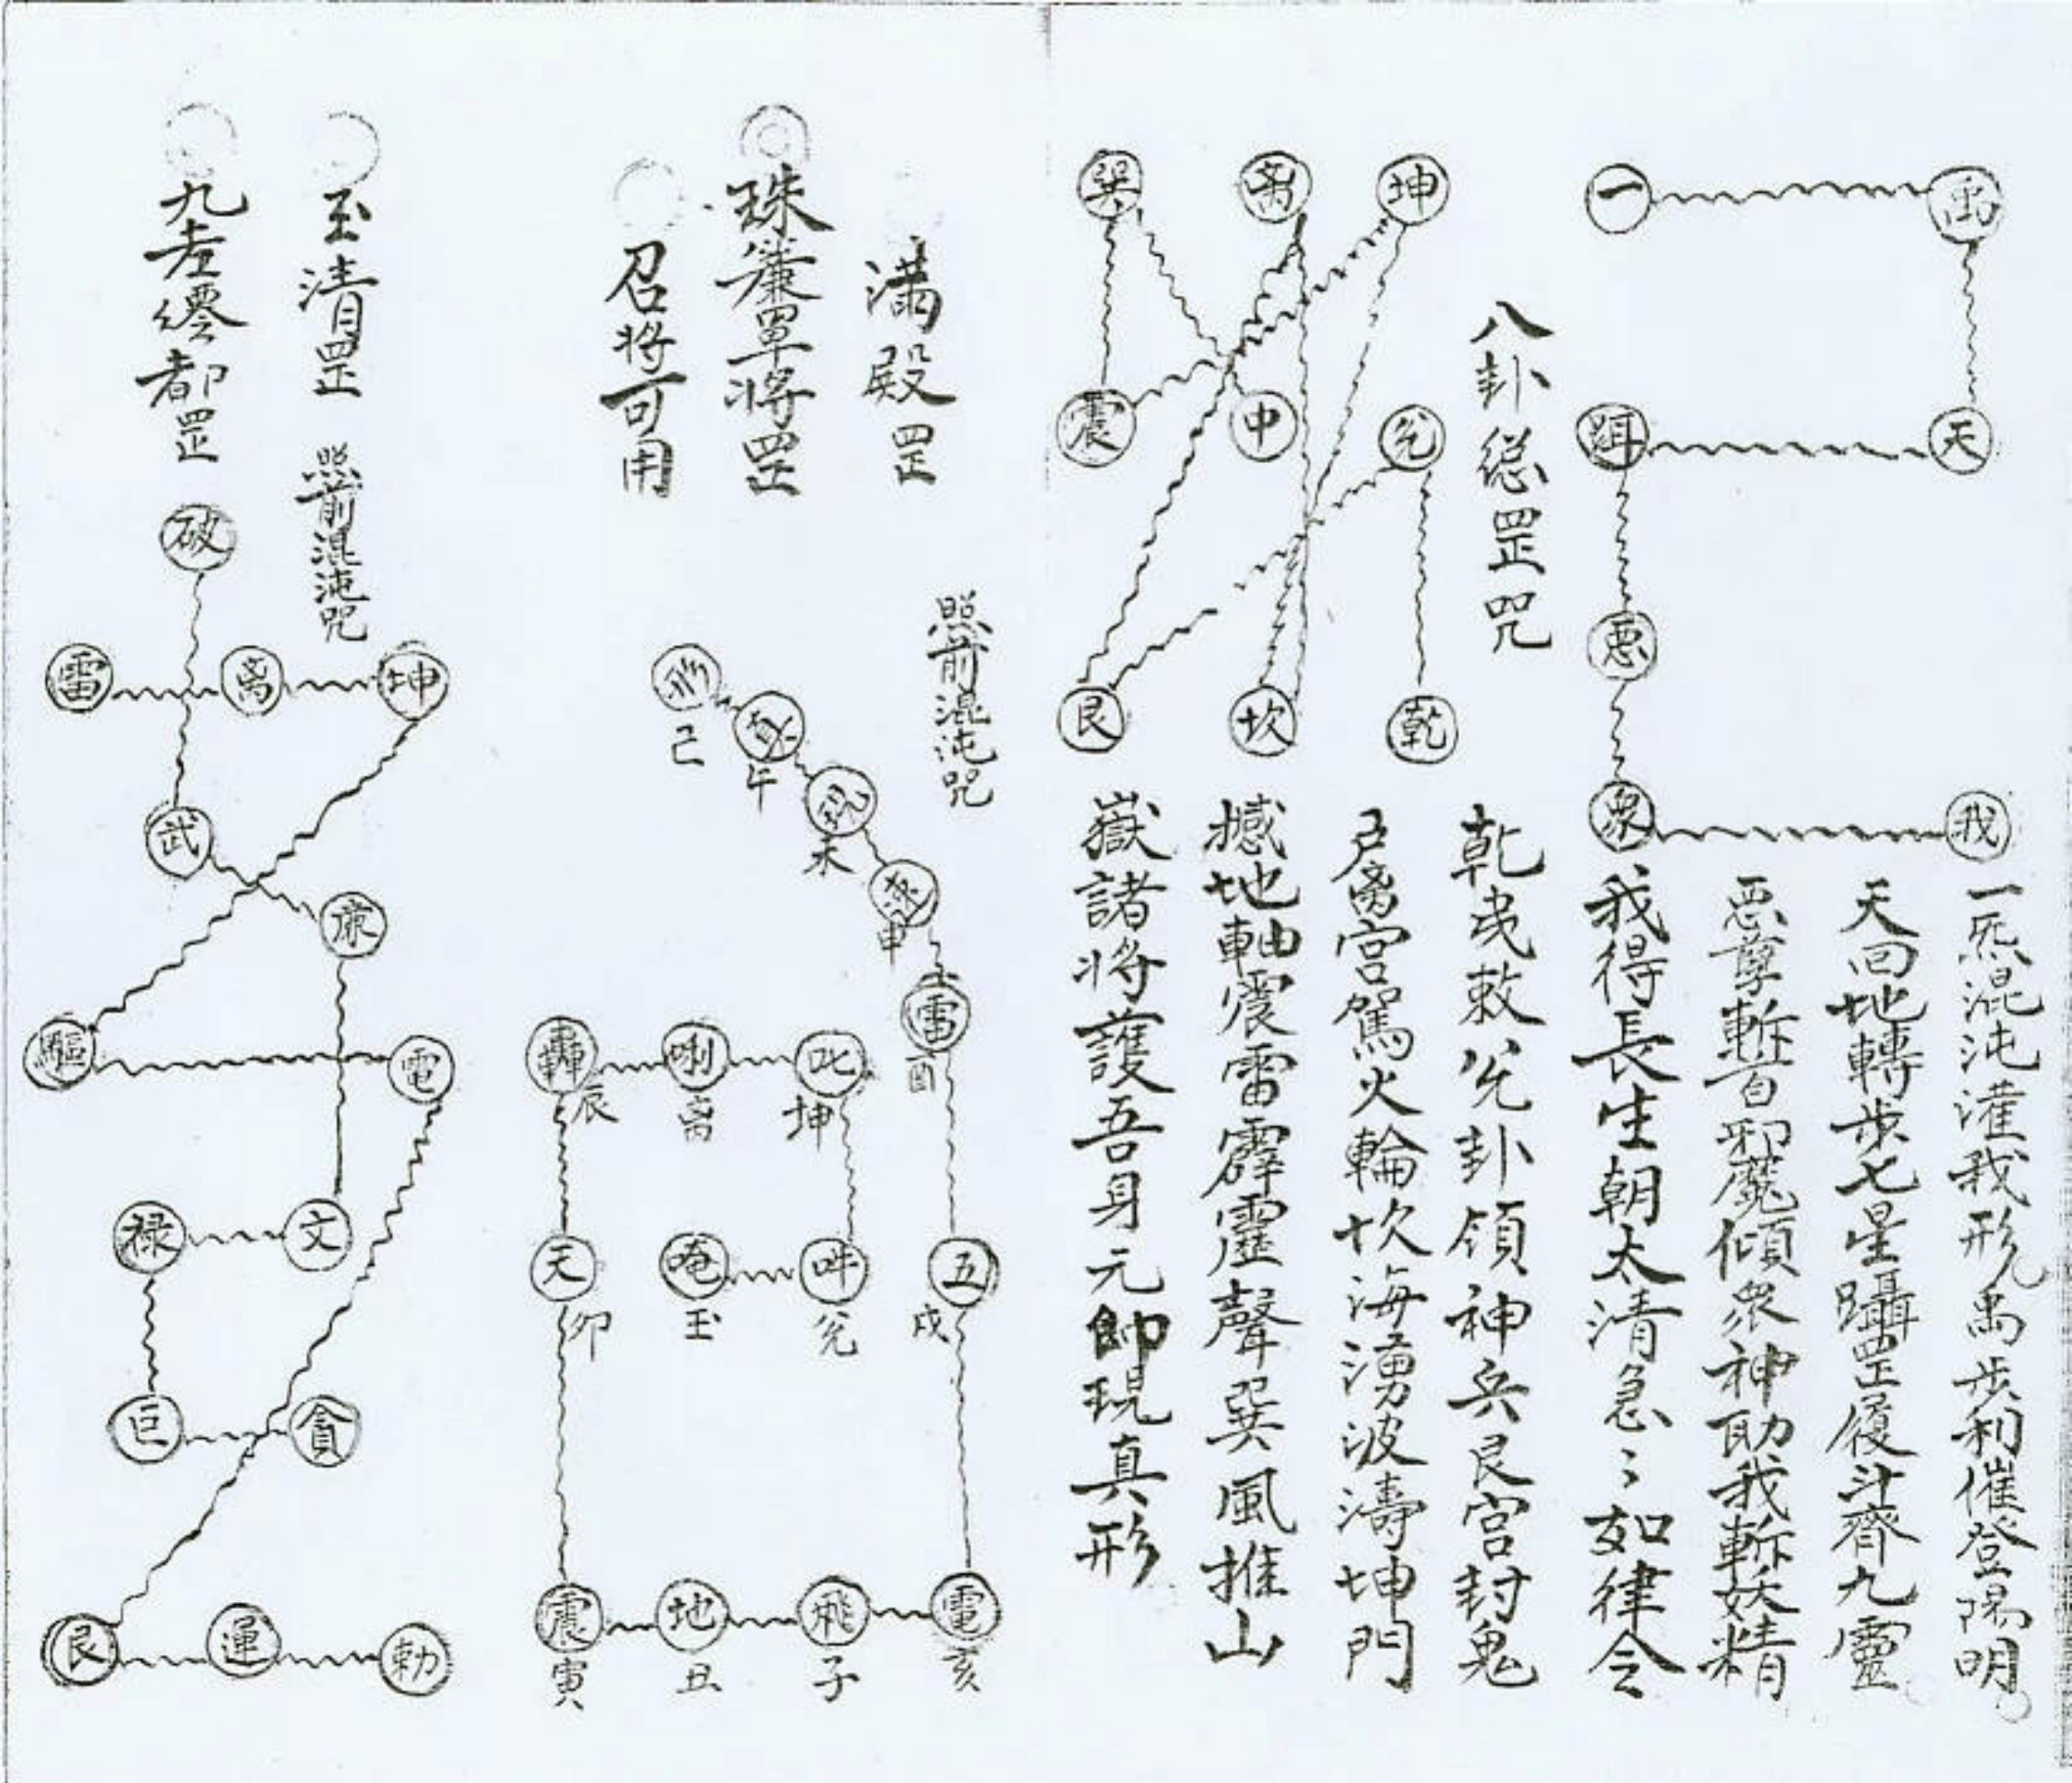 禹
一
天
我
衆
一炁混沌灌我形禹步利催登陽明
天回地轉步七星躡罡履斗齊九靈
惡孽斬百邪魔傾衆神助我斬妖精
我得長生朝太清急〻如律令
八卦总罡咒
坤
离
巽
兌
中
震
乾
坎
艮
敕兌卦領神兵艮宮封鬼
离宮駕火輪坎海湧波濤坤門
撼地軸震雷霹靂聲巽風推山
嶽諸將護吾身元帥現真形
滿殿罡
照前混沌咒
珠簾罩將罡
召將可用
己
午
申
雷
酉
五
戌
電
亥
飛
子
地
丑
震
寅
天
卯
轟
辰
唎
离
叱
坤
吽
兌
唵
玉
玉清罡
照前混沌咒
都罡
破
武
廉
文
禄
巨
貪
雷
离
坤
驅
電
艮
運
勅